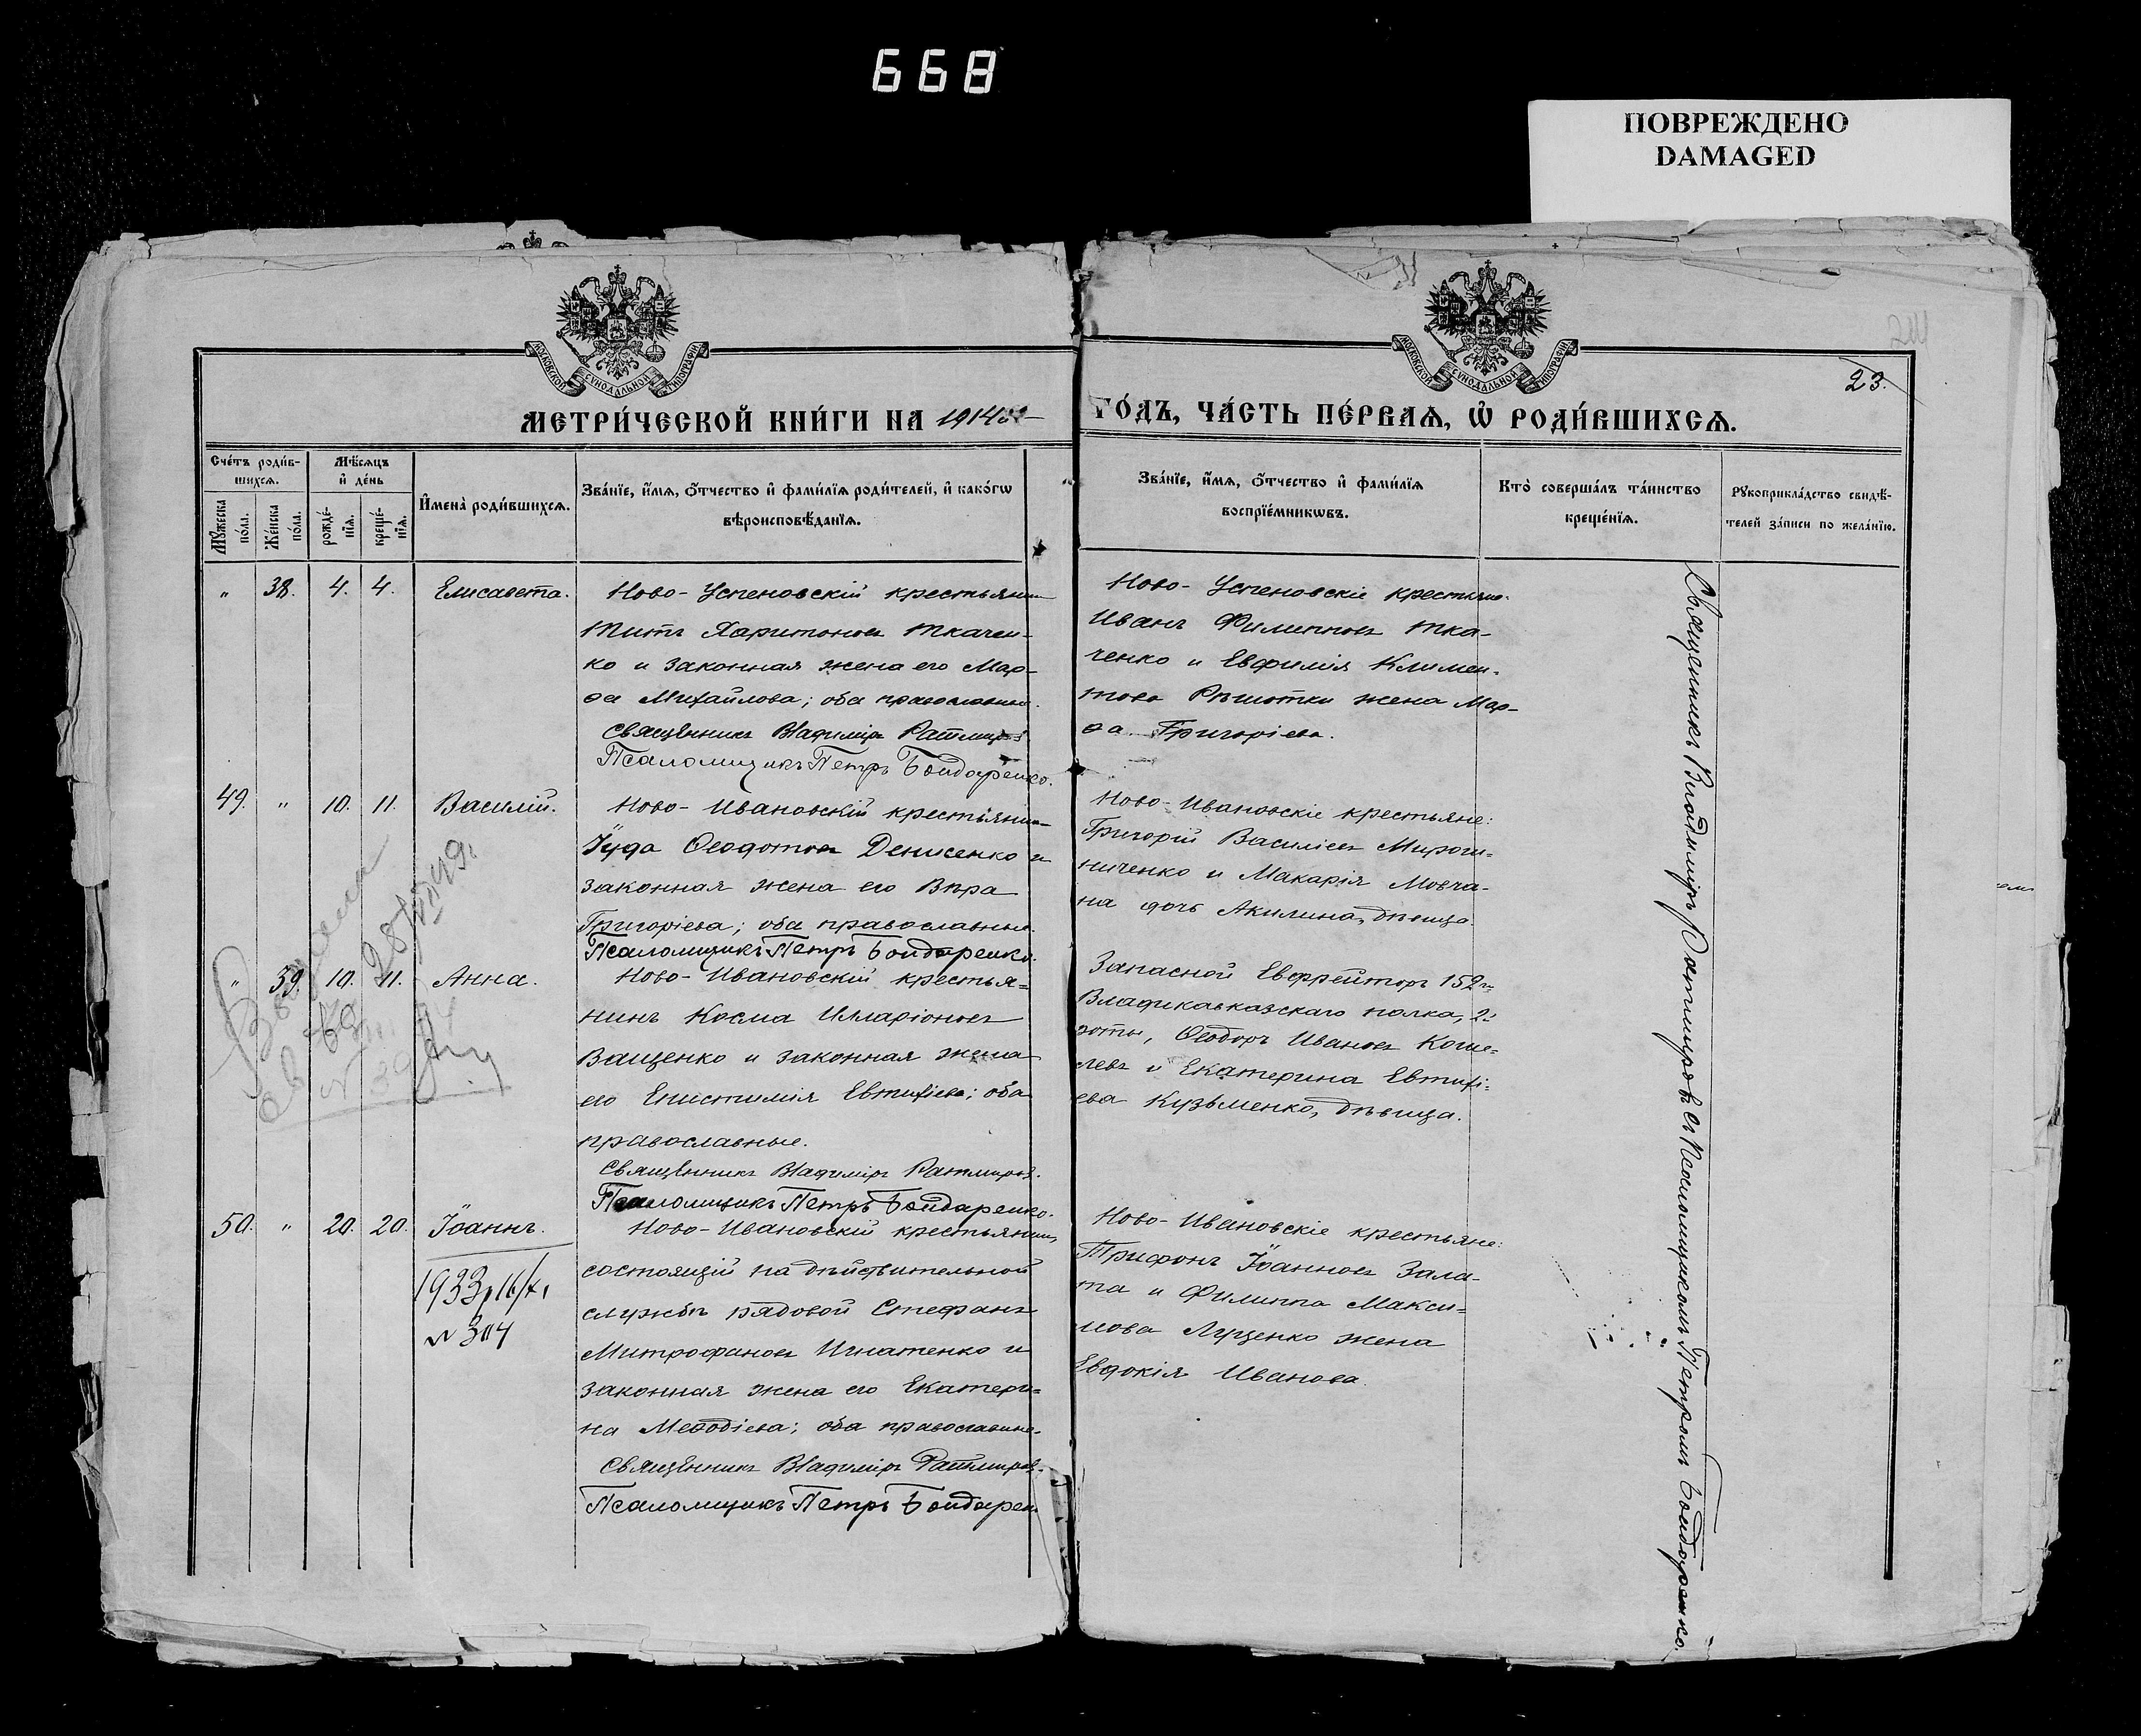 668
ПОВРЕЖДЕНО
DAMAGED
МОСКОВСКОЙ СѴНОДАЛЬНОЙ ТИПОГРАФІИ
МОСКОВСКОЙ СѴНОДАЛЬНОЙ ТИПОГРАФІИ
23.
МЕТРИ́ЧЕСКОЙ КНИ́ГИ НА 1914
ГО́ДЪ, ЧА́СТЬ ПЕ́РВАѦ, Ѡ҆ РОДИ́ВШИХСѦ.
Сче́тъ роди́в-
шихсѧ.
Мꙋ́жеска по́ла.
Же́нска по́ла.
Мѣ́сѧцъ
и҆ де́нь
рожде́-
нїѧ.
креще́-
нїѧ.
И҆мена̀ роди́вшихсѧ.
Зва́нїе, и҆́мѧ, ѻ҆́тчество и҆ фами́лїѧ роди́телей, и҆ како́гѡ
вѣроисповѣ́данїѧ.
Зва́нїе, и҆́мѧ, ѻ҆́тчество и҆ фами́лїѧ
воспрїе́мникѡвъ.
Кто̀ соверша́лъ та́инство
креще́нїѧ.
Рꙋкоприкла́дство свидѣ́-
телей за́писи по жела́нїю.
" 38. 4. 4. Елисавета.
Ново-Успеновскій крестьянин
Титъ Харитоновъ Ткачен-
ко и законная жена его Мар-
ѳа Михайлова; оба православные.
Священникъ Владиміръ Ратмировъ
Псаломщикъ Петръ Бондаренко.
Ново-Успеновскіе крестьяне
Иванъ Филипповъ Тка-
ченко и Евфимія Климен-
това жена Мар-
ѳа Григоріева.
49. " 10. 11. Василій.
Ново-Ивановскій крестьянин
Іуда Ѳеодотовъ Денисенко и
законная жена его Вѣра
Григоріева; оба православные.
Псаломщикъ Петръ Бондаренко.
Ново-Ивановскіе крестьяне:
Григорій Василіевъ Мирош-
ниченко и Макарія Мовча-
на дочь Акилина, дѣвица.
" 39. 10. 11. Анна.
Ново-Ивановскій крестья-
нинъ Косма Иларіоновъ
Ващенко и законная жена
его Епистимія Евтихіева; оба
православные.
Священникъ Владиміръ Ратмировъ.
Псаломщикъ Петръ Бондаренко.
Запасной Евфрейторъ 152го
Владикавказскаго полка, 2й
роты, Ѳеодоръ Ивановъ Коше-
левъ и Екатерина Евтихі-
ева Кузьменко, дѣвица.
50. " 20. 20. Іоаннъ.
1933, 16/XI
№ 304
Ново-Ивановскій крестьянин,
состоящій на дѣйствительной
службѣ рядовой Стефанъ
Митрофановъ Игнатенко и
законная жена его Екатери-
на Меѳодіева; оба православные.
Священникъ Владиміръ Ратмировъ.
Псаломщикъ Петръ Бондарен
Ново-Ивановскіе крестьяне:
Трифонъ Іоанновъ Зала-
та и Филиппа Макси-
мова Луценко жена
Евдокія Иванова.
Священникъ Владиміръ Ратмировъ съ Псаломщикомъ Петромъ Бондаренко.